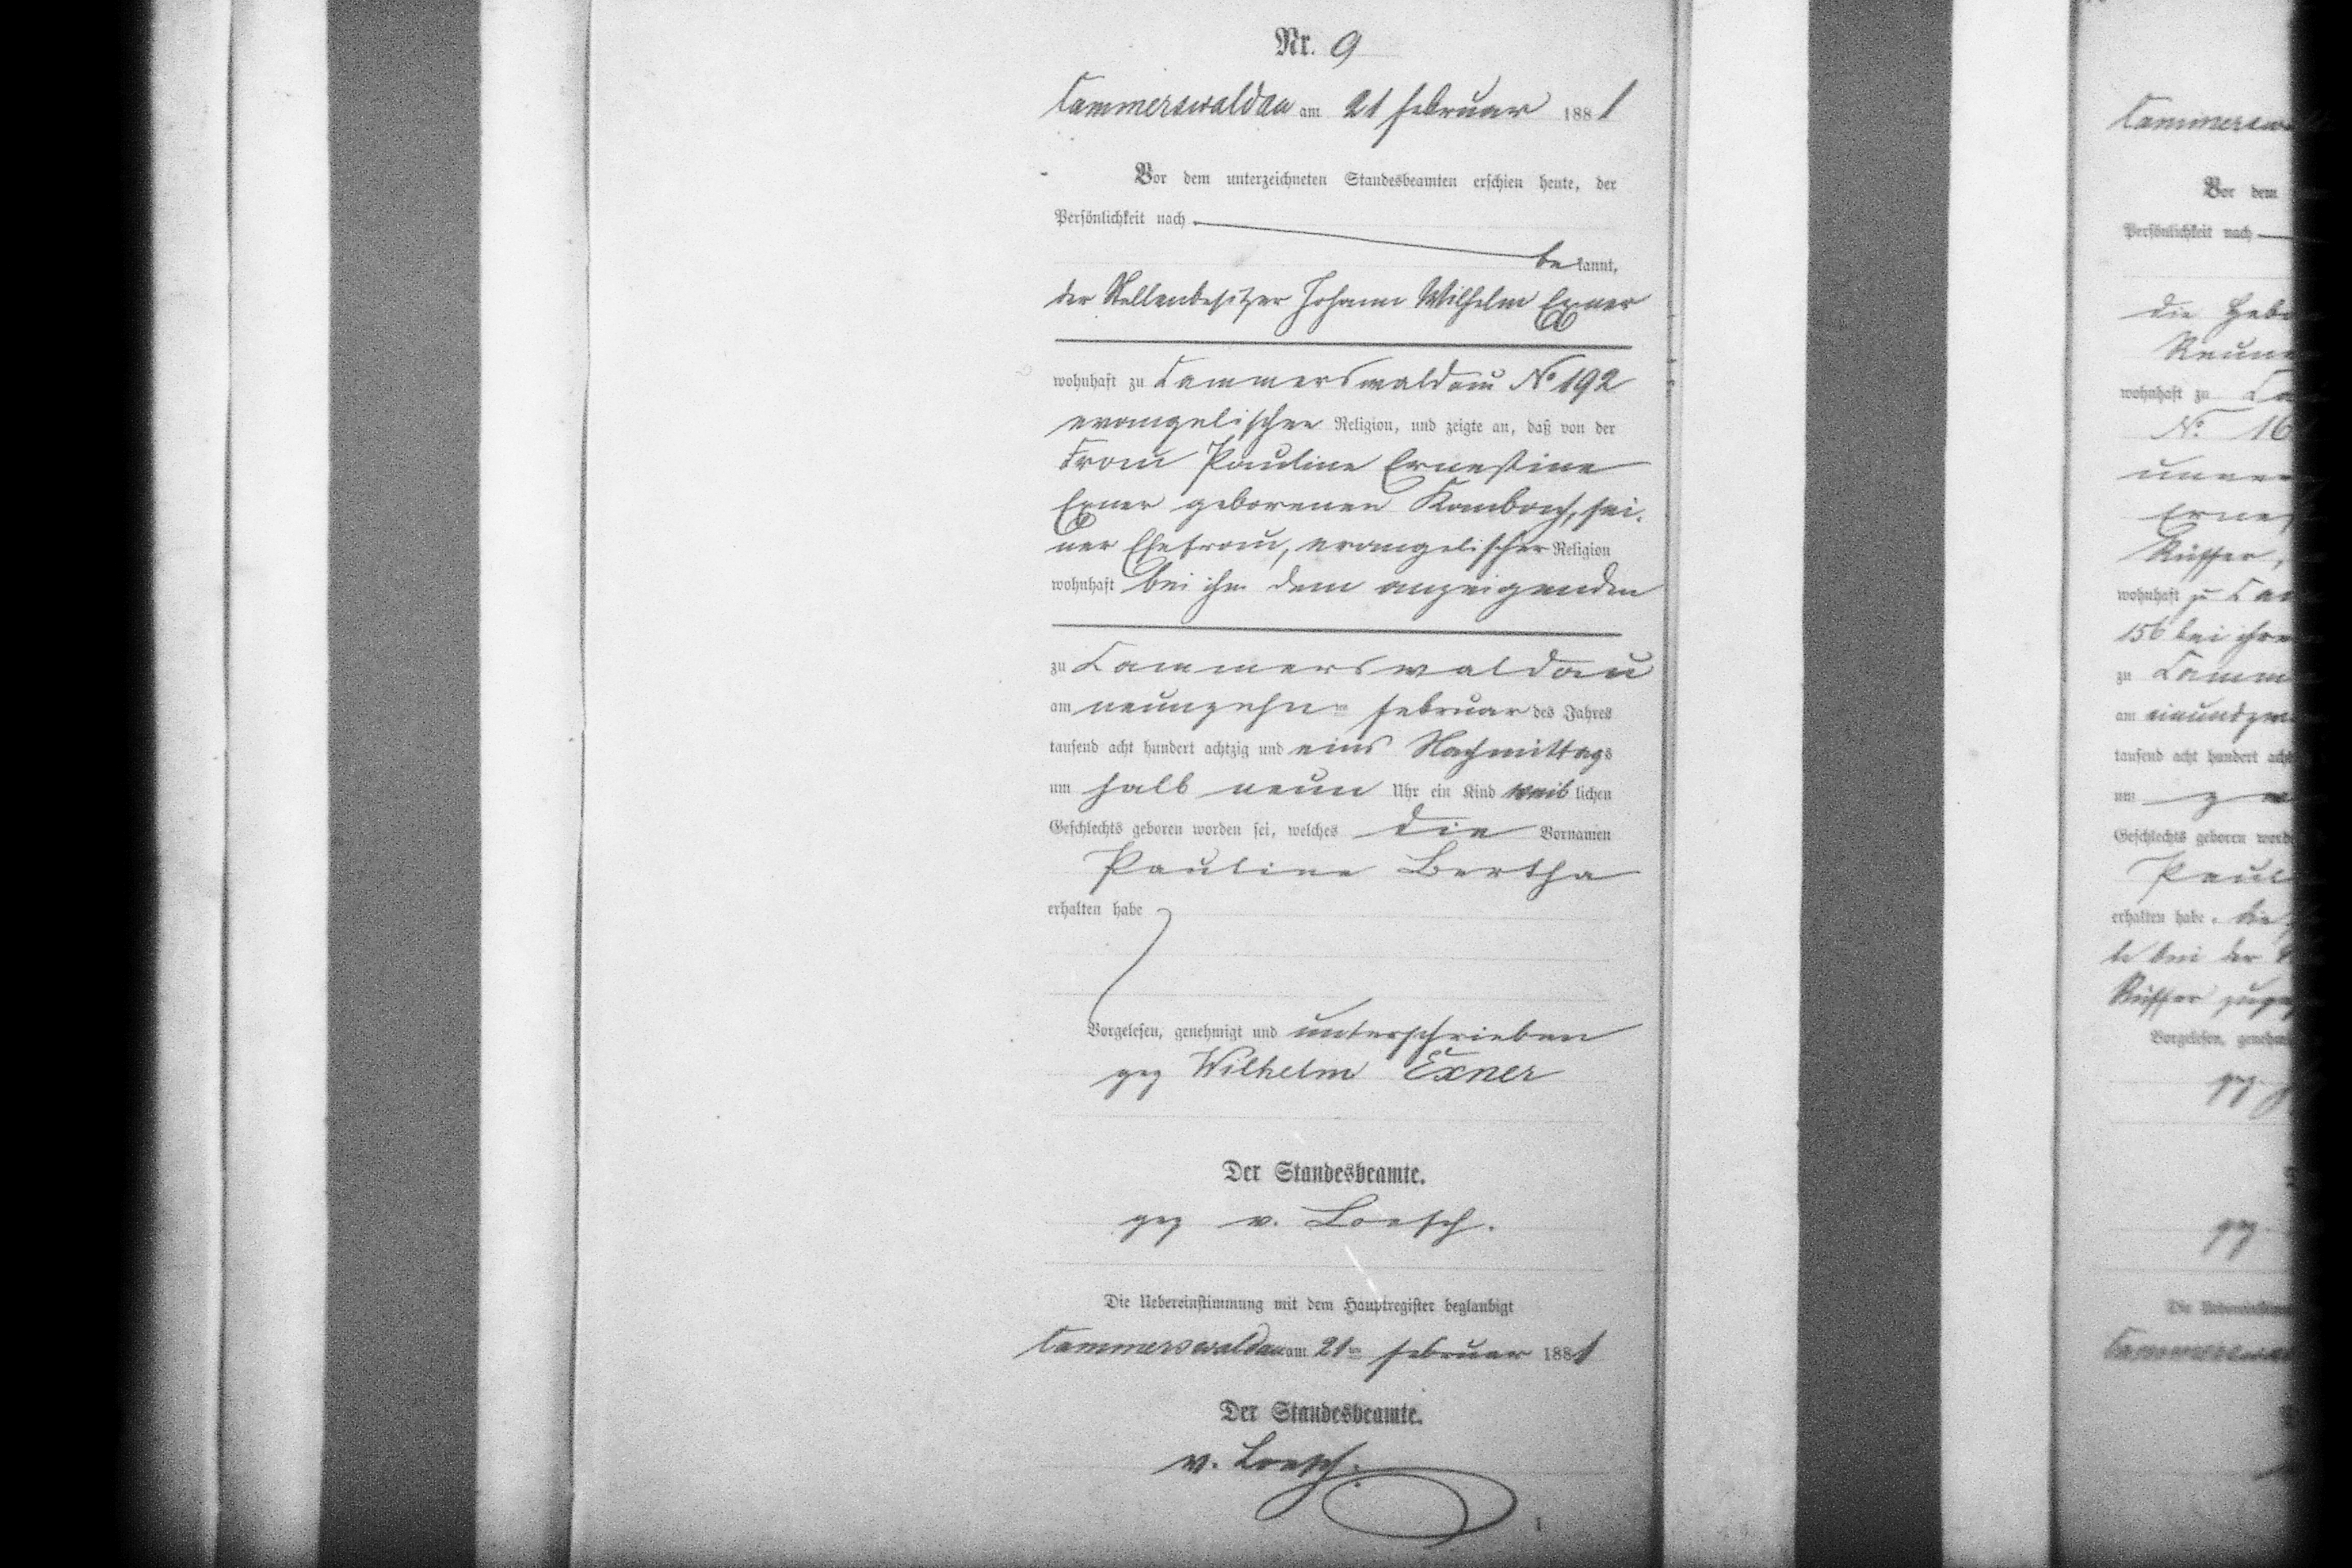 Nr. 9
Cammerswaldau am 21 Februar 1881
Vor dem unterzeichneten Standesbeamten erschien heute, der
Persönlichkeit nach
bekannt,
der Stellenbesitzer Johann Wilhelm Exner
wohnhaft zu Cammerswaldau No 192
evangelischer Religion, und zeigte an, daß von der
Frau Pauline Ernestine
Exner geborenen Kambach, sei-
ner Ehefrau, evangelischer Religion
wohnhaft bei ihm dem anzeigenden
zu Cammerswaldau
am neunzehnten Februar des Jahres
tausend acht hundert achtzig und eins Nachmittags
um halb neun Uhr ein Kind weiblichen
Geschlechts geboren worden sei, welches die Vornamen
Pauline Bertha
erhalten habe
Vorgelesen, genehmigt und unterschrieben
gez Wilhelm Exner
Der Standesbeamte.
gez v. Loesch.
Die Uebereinstimmung mit dem Hauptregister beglaubigt
Cammerswaldau am 21ten Februar 1881
Der Standesbeamte.
v. Loesch.
Vor dem
Persönlichkeit nach
die
wohnhaft zu
No 16
wohnhaft zu
156 bei
zu
am
tausend acht hundert
um
Geschlechts geboren
erhalten habe.
bei der
Vorgelesen,
gez
gez
Die